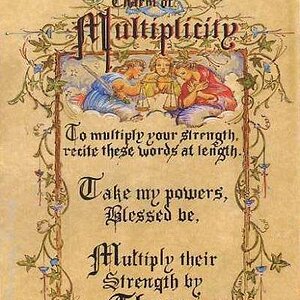 Charm of
Multiplicity
To multiply your strength,
recite these words at length.
Take my powers,
Blessed be,
Multiply their
Strength by